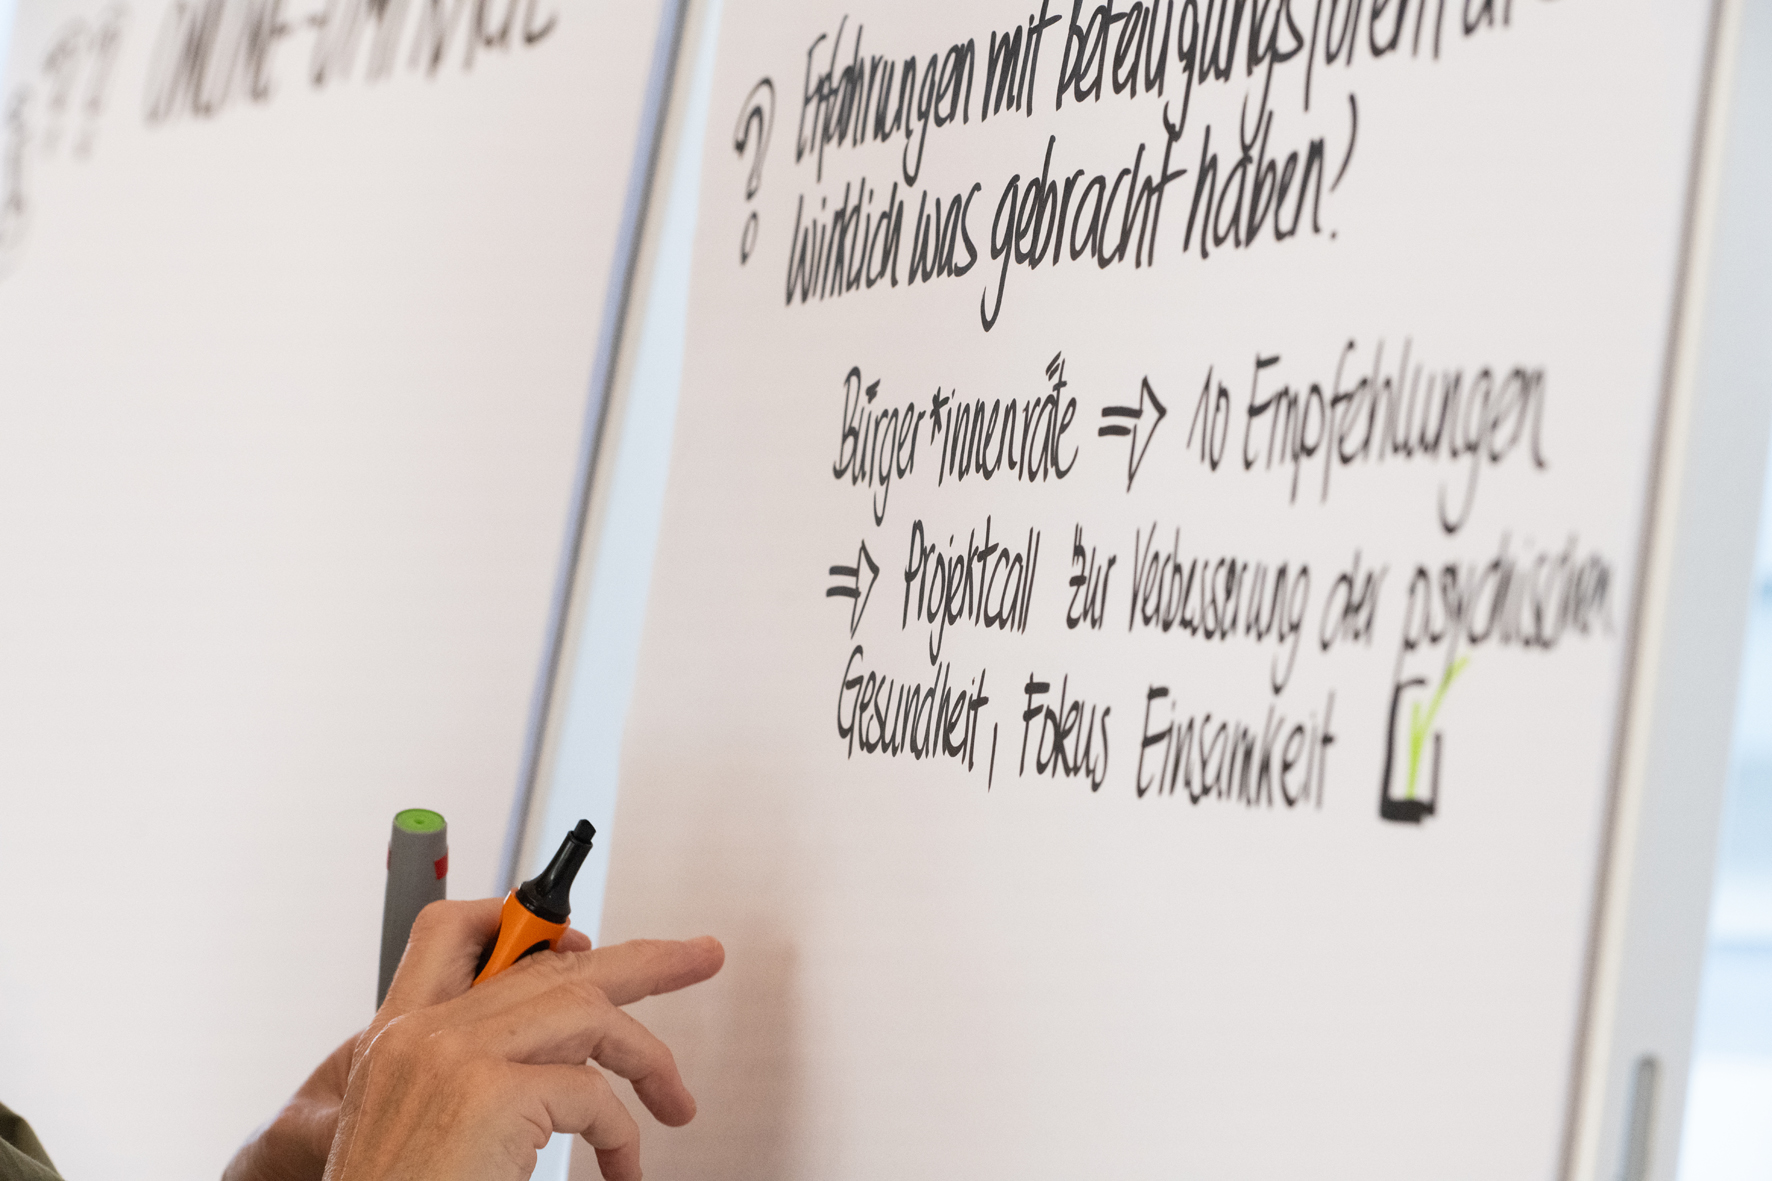 ??
ONLINE-
? Erfahrungen mit beteiligungsforen, die
wirklich was gebracht haben?
Bürger*innenräte ⇒ 10 Empfehlungen
⇒ Projektcall zur Verbesserung der psychischen
Gesundheit, Fokus Einsamkeit